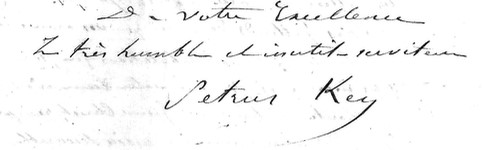 De votre Excellence
Le très humble et inutile serviteur
Petrus Key